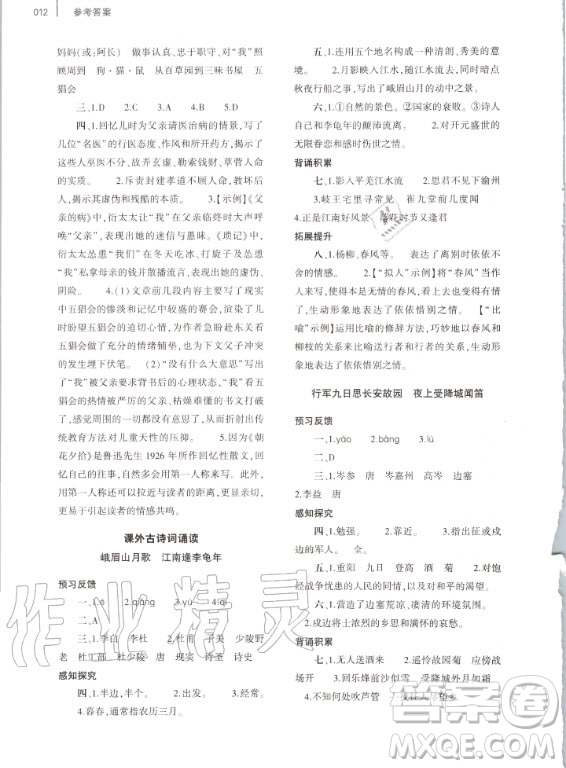 012 参考答案
妈妈(或:阿长) 做事认真、忠于职守、对“我”照
顾周到 狗·猫·鼠 从百草园到三味书屋 五
猖会
三、1.D 2.C
四、1.回忆儿时为父亲请医治病的情景,写了
几位“名医”的行医态度、作风和所开药方,揭示
了这些人巫医不分、故弄玄虚、勒索钱财、草菅人
命的实质。 2.斥责封建孝道不顾人命、教坏后
人,揭示其虚伪和残酷的本质。 3.【示例】《父
亲的病》中,衍太太让“我”在父亲临终时大声呼
唤“父亲”,表现出她的迷信与愚昧。《琐记》中,
衍太太怂恿“我们”在冬天吃冰、打旋子及怂恿
“我”私拿母亲的钱并散播流言,表现出她的虚伪、
阴险。 4.(1)文章前几段内容主要描写了五
猖会的惨淡和记忆中较盛的赛会,渲染了“我”盼
望五猖会的迫切心情,为作者急盼赴东关看五
猖会做了铺垫和蓄势,也为下文父子冲突
的发生埋下伏笔。 (2)“没有什么大意思”写出
了因为父亲要求背书后的心理。“我”看着五
猖会的被严厉的父亲强制背书的压抑和痛
苦,感觉周围的一切都没有意思,反映了封建传
统教育方法对儿童天性的压抑。 5.因为《朝
花夕拾》是鲁迅先生1926年所写回忆性散文,既
是回忆,所以一般使用第一人称来写。再者,使
用第一人称可以拉近与读者的距离,更容易引起
读者的情感共鸣。
课外古诗词诵读
峨眉山月歌 江南逢李龟年
预习反馈
二、A
三、1.李白 李杜 2.杜甫 子美 少陵野
老 杜工部 杜少陵 唐 现实 诗圣 诗史
感知探究
四、1.半圆形的秋月。 2.月影。 3.寻常,经常。
4.暮春,通常指农历三月。
五、1.连用五个地名构成了一种清朗、秀美的意
境。 2.月影映入江水,又随江水流去;同时暗点
秋夜行船之事,写出了峨眉山月的动中之景。
六、1.①自然的景色。②国家的衰败。③诗人
自己和李龟年的颠沛流离。 2.对开元盛世的
无限眷恋和对国事凋零的感慨。
背诵积累
七、1.影入平羌江水流 2.思君不见下渝州
3.岐王宅里寻常见 崔九堂前几度闻
4.正是江南好风景 落花时节又逢君
拓展提升
八、1.杨柳、春风等。 表达了诗人依依不
舍的情感。 2.【“拟人”示例】将“春风”
当作人来写,写春风也舍不得与行者分离,
生动形象地表达了依依惜别之情。 【“比
喻”示例】运用比喻的修辞方法,巧妙地以春风和
柳枝的关系,来比喻送行者与行者的关系,生动形
象地表达了依依惜别之情。
行军九日思长安故园 夜上受降城闻笛
预习反馈
一、1.yáo 2.bàng 3.lú
二、D
三、1.岑参 唐 岑嘉州 高岑 边塞
2.李益 唐
感知探究
四、1.勉强。 2.靠近。
边的军人。 全。
五、1.重阳 九日 登高 酒 菊花
经战争忧患的人民、早日和平的渴望。
六、1.营造出寂寥荒凉、凄冷的环境氛围。
2.戍边将士思念家乡而不得归的满怀哀愁。
背诵积累
七、1.无人送酒来 2.遥怜故园菊 应傍战
场开 3.回乐烽前沙似雪 受降城外月如霜
4.不知何处吹芦管
作业精灵
答案圈
MXQE.COM